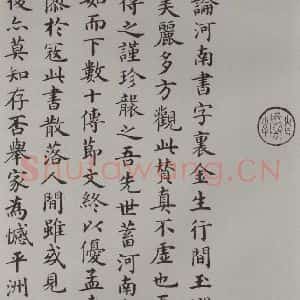 論河南書字裏金生行間玉
美麗多方觀此贊真不虛也
得之謹珍襲之吾先世蓄河南
如而下數十傳節文終以優孟
於寇此書散落人間雖或見
後亦莫知存否舉家為憾平洲
Shufawang.CN